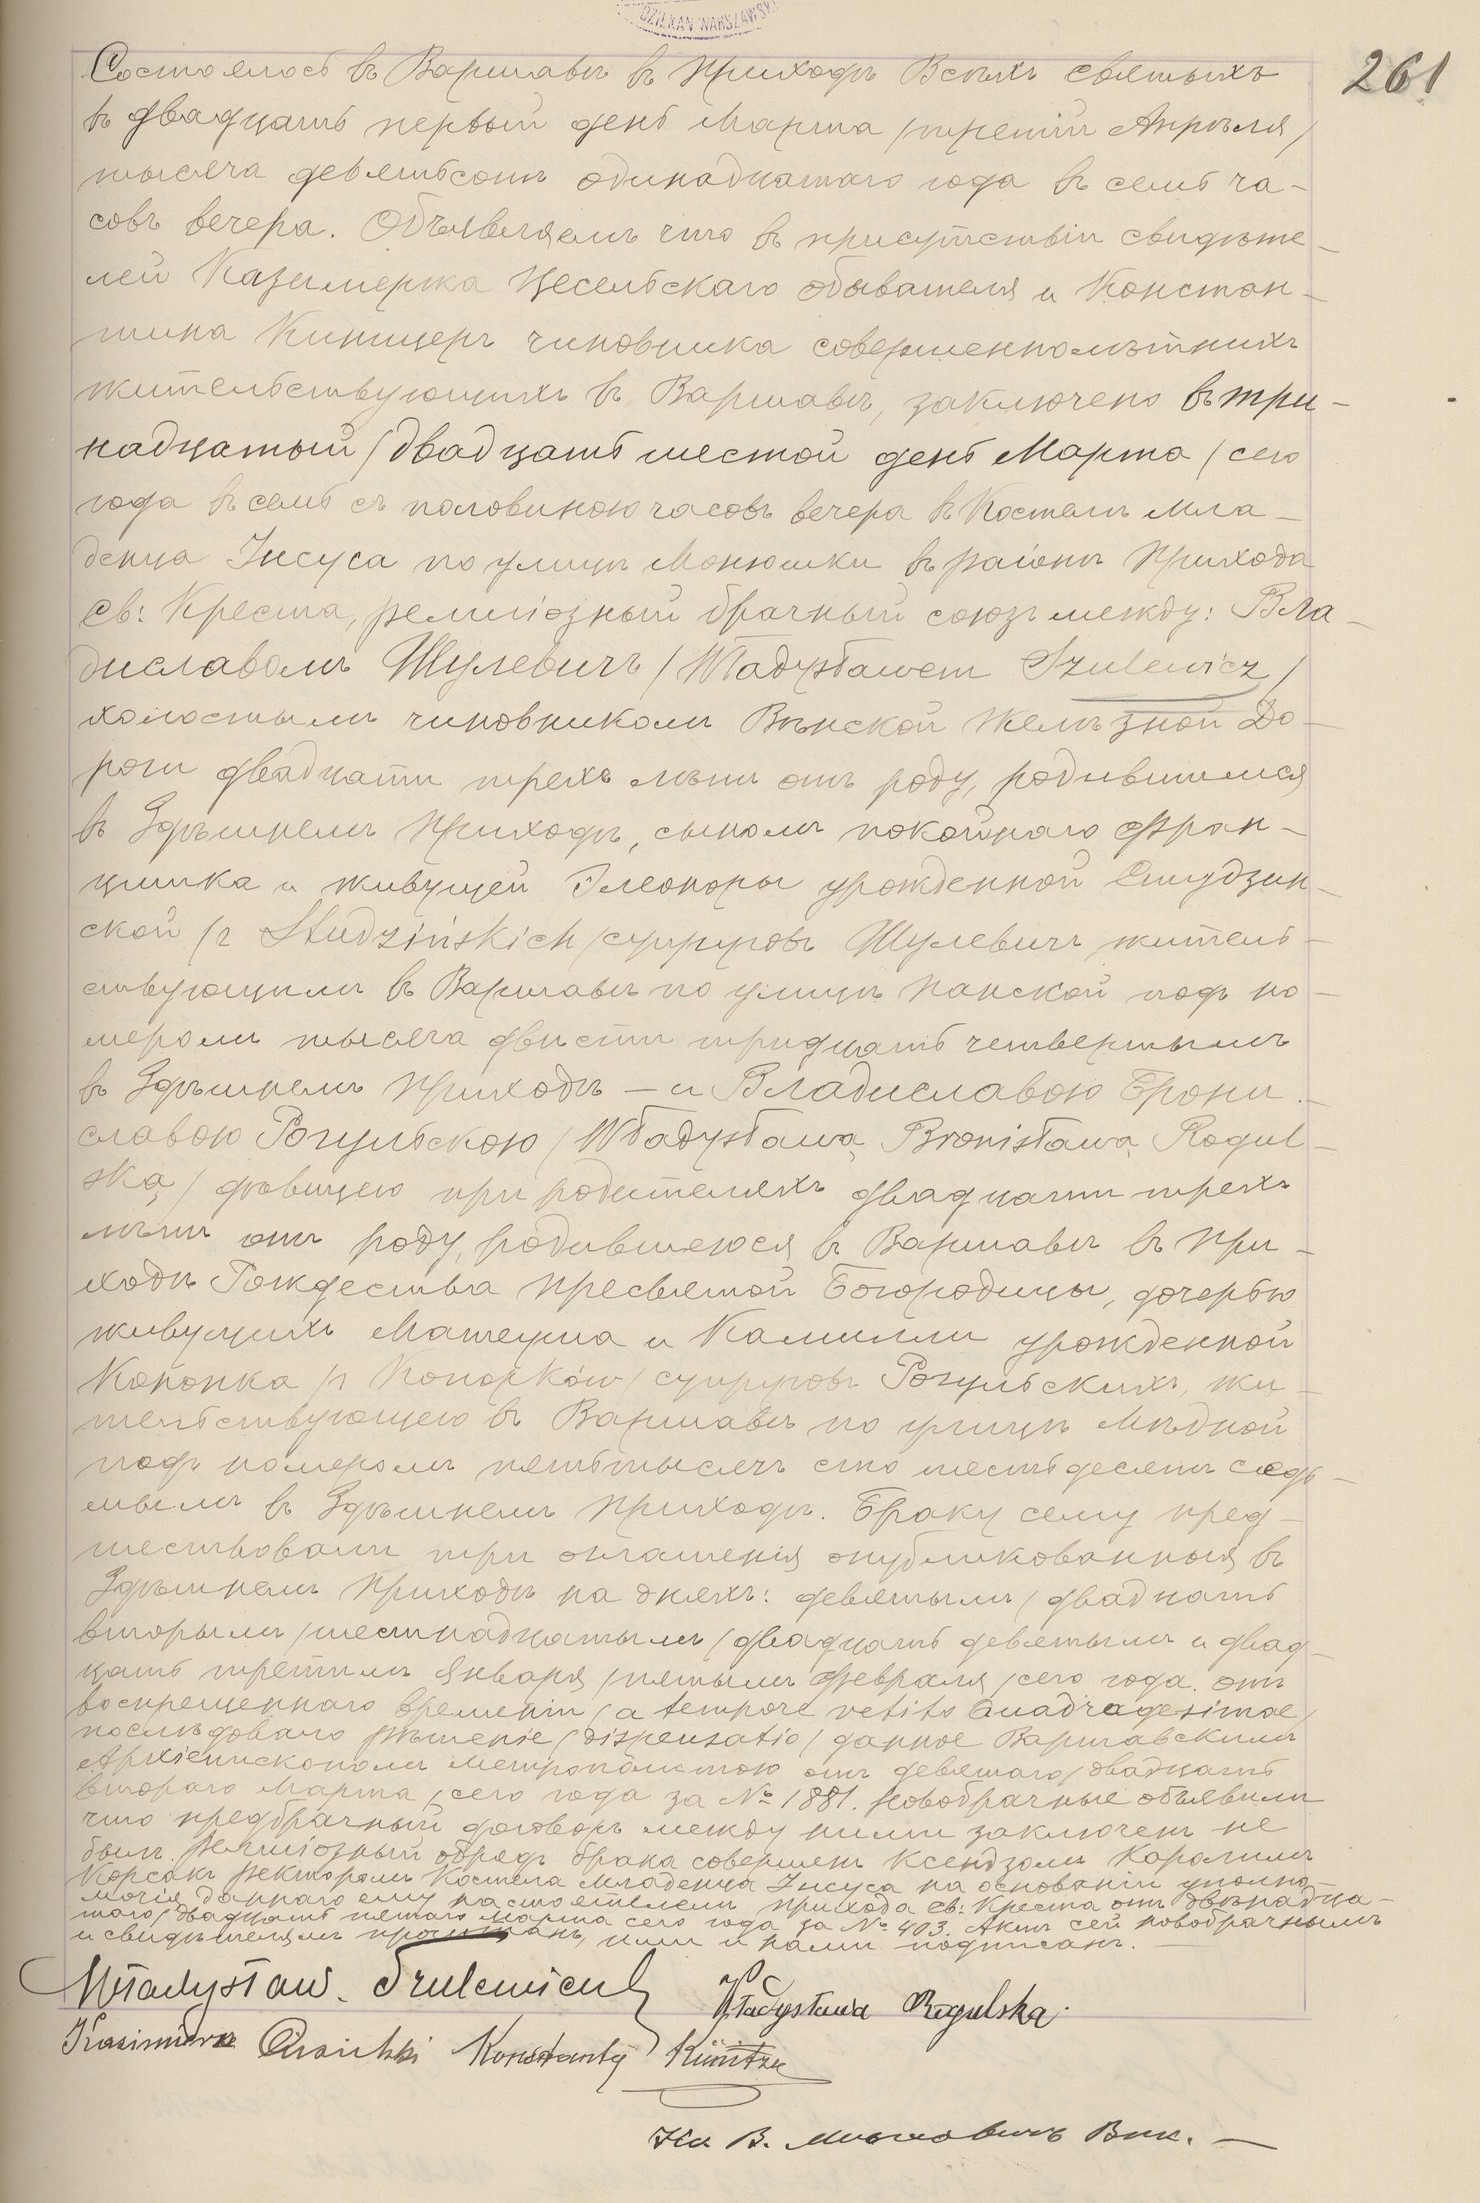 DZIEKAN WARSZAWSKI
261
Состоялось въ Варшавѣ въ Приходѣ Всѣхъ святыхъ
въ двадцать первый день Марта /третій Апрѣля/
тысяча девятьсотъ одинадцатаго года въ семь ча-
совъ вечера. Объявляемъ что въ присутствіи свидѣте-
лей Казимержа Цесельскаго обывателя и Констан-
тина Кинитцеръ чиновника совершеннолѣтнихъ
жительствующихъ въ Варшавѣ, заключено въ три-
надцатый /двадцать шестой день Марта/ сего
года въ семь съ половиною часовъ вечера въ Костелѣ Мла-
денца Іисуса по улицѣ Монюшки въ районѣ Прихода
св: Креста, религіозный брачный союзъ между: Вла-
диславомъ Шулевичъ /Władysławem Szulewicz/
холостымъ чиновникомъ Вѣнской Желѣзной До-
роги двадцати трехъ лѣтъ отъ роду, родившимся
въ Здѣшнемъ Приходѣ, сыномъ покойнаго Фран-
цишка и живущей Элеоноры урожденной Студзин-
ской /z Studzińskich/ супруговъ Шулевичъ житель-
ствующимъ въ Варшавѣ по улицѣ Панской подъ но-
меромъ тысяча двѣсти тридцать четвертымъ
въ Здѣшнемъ Приходѣ – и Владиславою Брони-
славою Рогульскою /Władysławą Bronisławą Rogul-
ską/ дѣвицею при родителяхъ двадцати трехъ
лѣтъ отъ роду, родившеюся въ Варшавѣ въ При-
ходѣ Рождества Пресвятой Богородицы, дочерью
живущихъ Матеуша и Камилли урожденной
Копопка /z Konopków/ супруговъ Рогульскихъ, жи-
тельствующею въ Варшавѣ по улицѣ Мѣдной
подъ номеромъ пятьтысячъ сто шестьдесятъ седь-
мымъ въ Здѣшнемъ Приходѣ. Браку сему пред-
шествовали три оглашенія опубликованныя въ
Здѣшнемъ Приходѣ на дняхъ: девятымъ /двадцать
вторымъ/ шестнадцатымъ /двадцать девятымъ и двад-
цать третимъ Января /пятымъ Февраля/ сего года. отъ
воспрещеннаго времени /a tempore vetito Quadragesimae/
послѣдовало рѣшеніе /dispensatio/ данное Варшавскимъ
Архіепископомъ Метрополитою отъ девятаго /двадцать
втораго Марта/ сего года за № 1881. Новобрачные объявили
что предбрачный договоръ между ними заключенъ не
былъ. Религіозный обрядъ брака совершенъ Ксендзомъ Каролемъ
Корсакъ Ректоромъ Костела Младенца Іисуса на основаніи уполно-
мочія даннаго ему настоятелемъ прихода св: Креста отъ двѣнадца-
таго /двадцать пятаго Марта сего года за № 403. Актъ сей новобрачнымъ
и свидѣтелямъ прочитанъ, ими и нами подписанъ. —
Władysław Szulewicz Władysława Rogulska.
Kazimierz Ciesielski Konstanty Künitzer
Кс. В. Вик. —